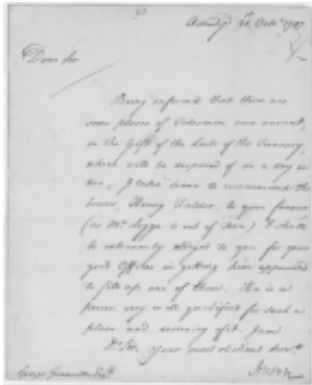 Dear Sir
Being informed that there are
some places of now vacant,
in the Gift of the Lords of the Treasury,
which will be disposed of in a day or
two, I take leave to recommend the
bearer, Henry to your favour
(as Mr. Legge is out of Town) I shall
be extremely obliged to you for your
good Offices in getting him appointed
to fill up one of them. He is a
person very well qualified for such a
place and deserving of it. I am
Dr. Sir, Your most obedient Servt.
George Grenville Esqr.